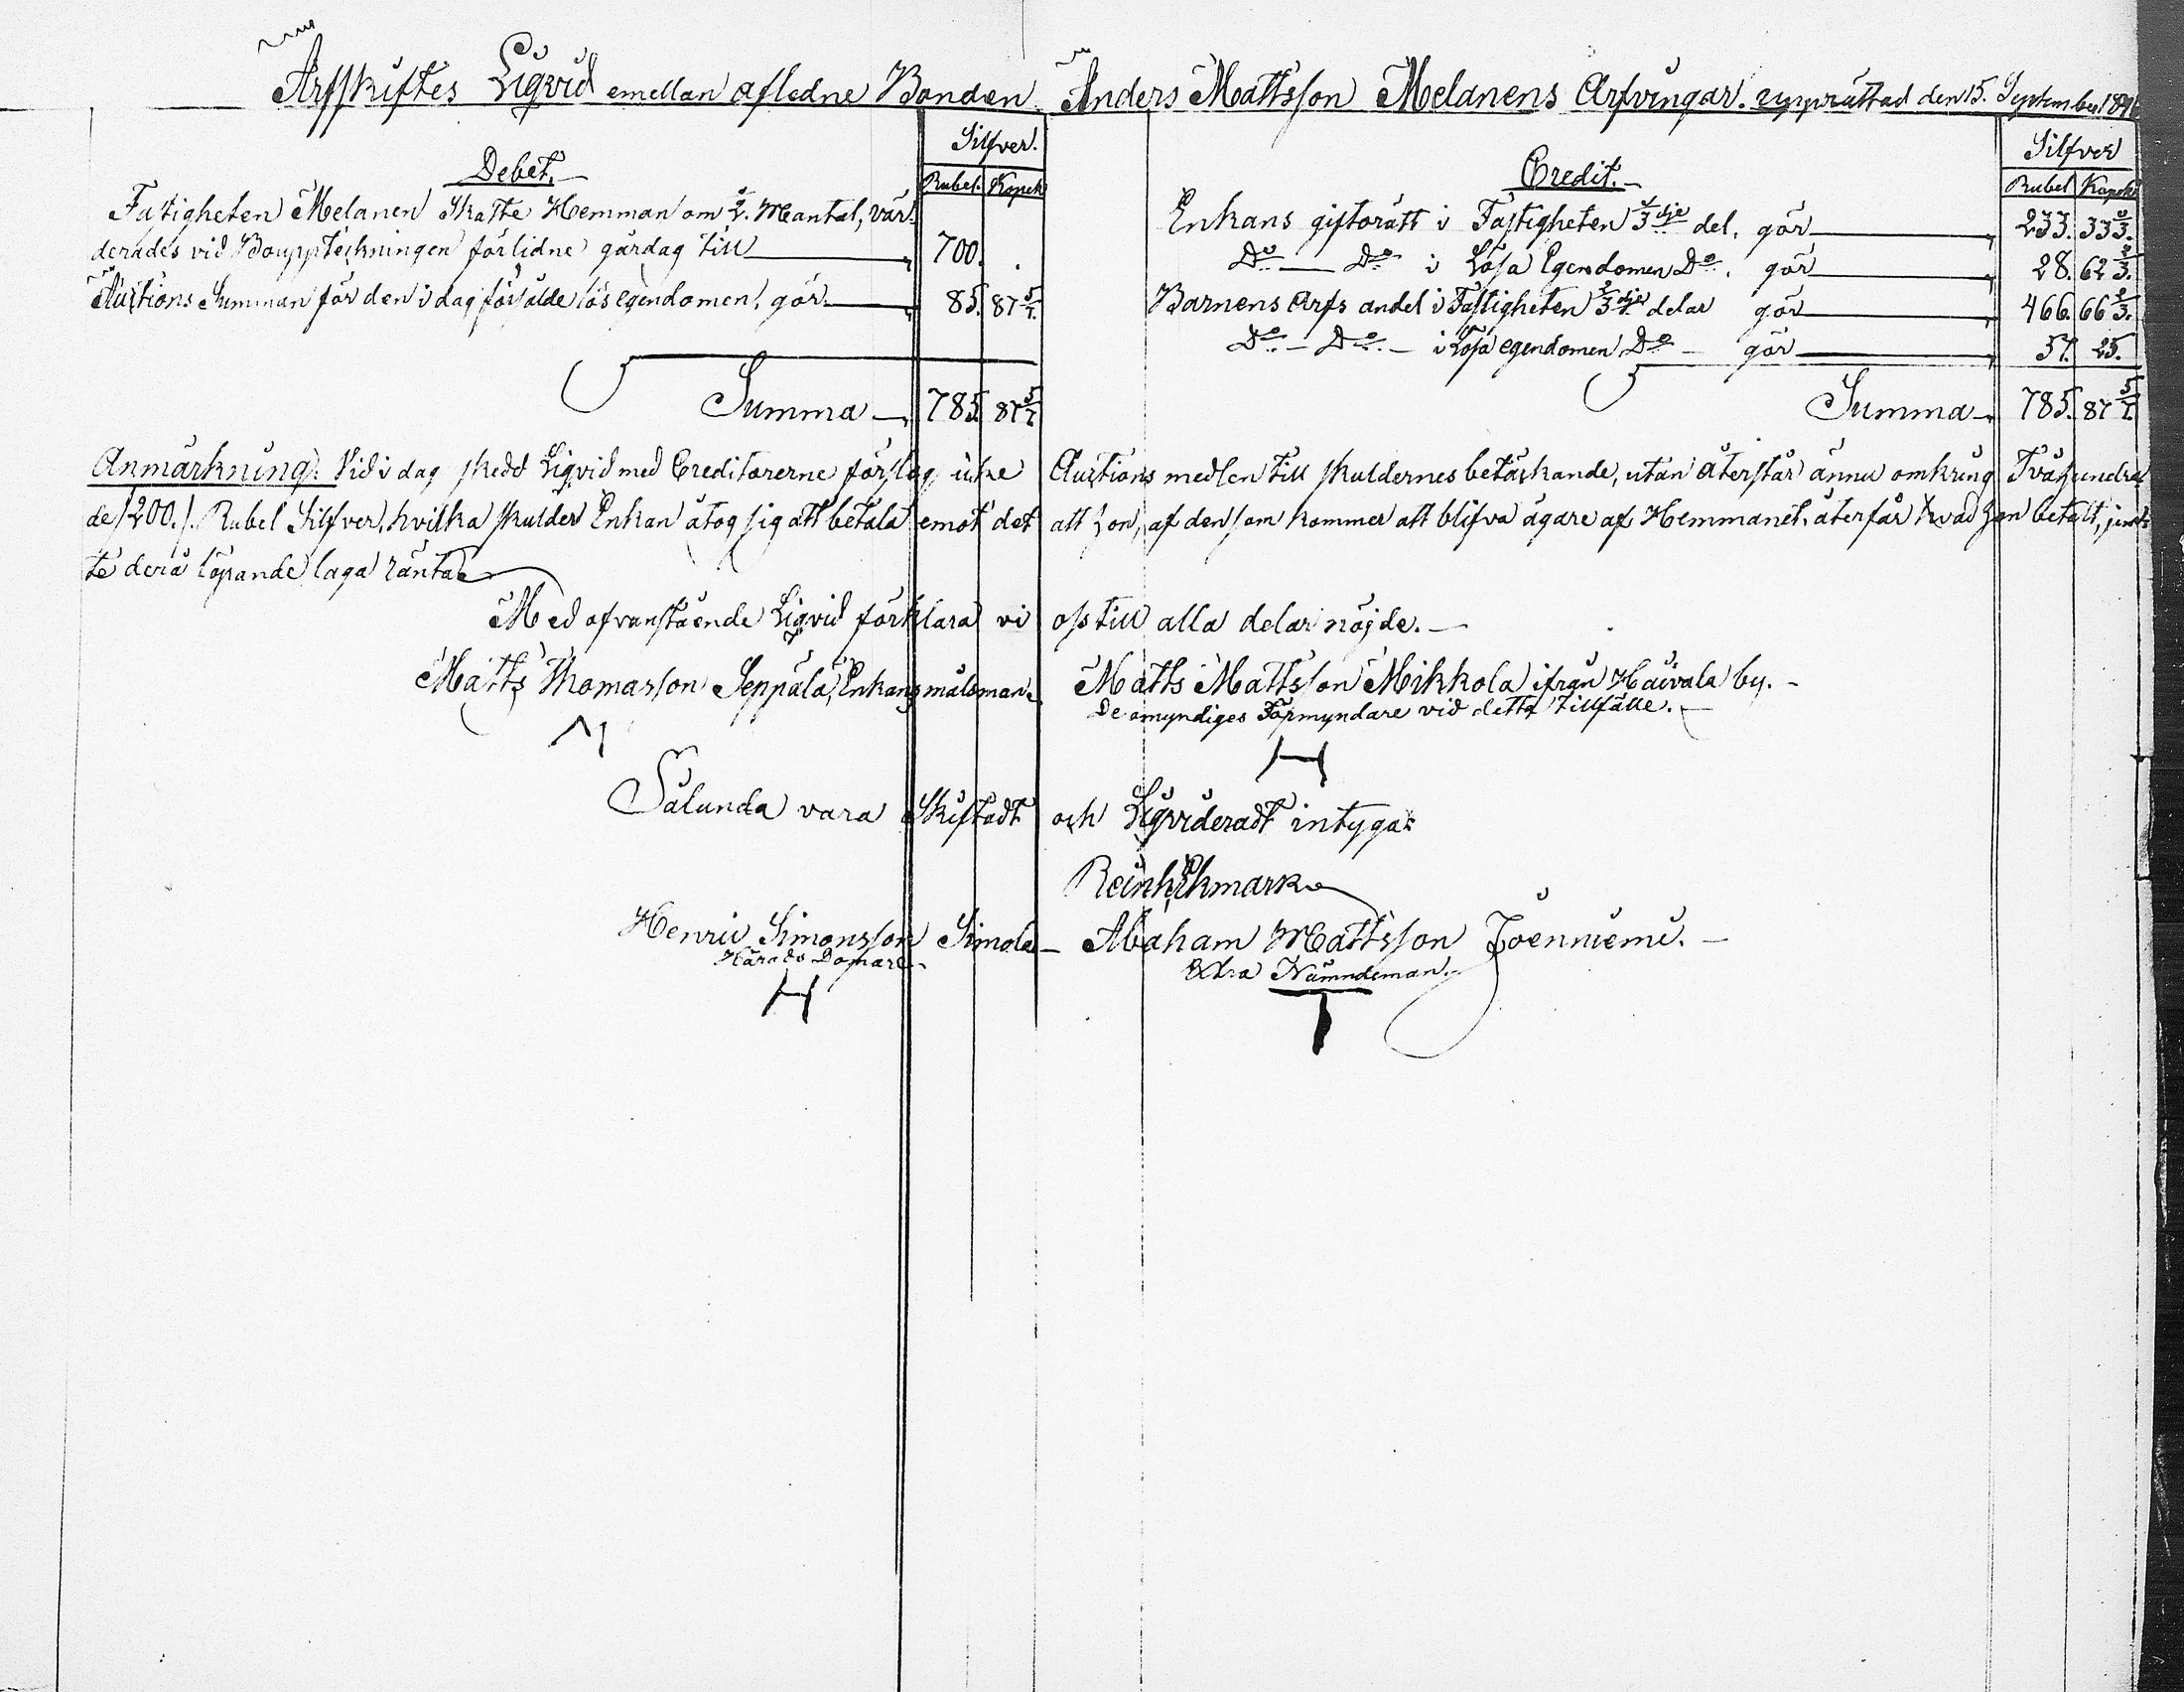 Arfskiftes Liqvid emellan aflidne Bonden Anders Mattsson Melanens Arfvingar. upprättad den 15. September
Debet.
Silfver.
Rubel. Kopek
Fastigheten Melanen Skatte Hemman om ½. Mantal, vär-
derades vid Bouppteckningen förlidne gårdag till 700. .
Auctions Summan för den i dag försålde lösegendomen, gör 85. 87 5/7.
Summa 785. 87 5/7.
Credit.
Silfver
Rubel Kopek
Enkans giftorätt i Fastigheten 1/3 dje del, gör 233. 33 1/3.
Do Do i Lösa Egendomen Do. gör 28. 62 2/3.
Barnens Arfs andel i Fastigheten 2/3 dje delar gör 466. 66 2/3.
Do Do i Lösa egendomen Do gör 57. 25.
Summa 785. 87 5/7.
Anmärkning: Vid i dag skedd Liqvid med Creditorerne förslog icke Auctions medlen till skuldernes betäckande, utan återstår ännu omkring Tvåhundra-
de /200./. Rubel Silfver, hvilka skulder Enkan åtog sig att betala emot det att hon, af den som kommer att blifva ägare af Hemmanet, återfår hvad hon betalt, jem-
te derå löpande laga ränta
Med ofvanstående Liqvid förklara vi oss till alla delar nöjde.
Matts Thomasson Seppälä, Enkans målsman. Matts Mattsson Mikkola ifrån Haivala by.
De omyndiges Förmyndare vid detta tillfälle.
Sålunda vara Skiftadt och Liqvideradt intygar
Reinh. Ekmark
Henric Simonsson Simola Abraham Mattsson Joenniemi.
Härads Domare. Extra Nämndeman.